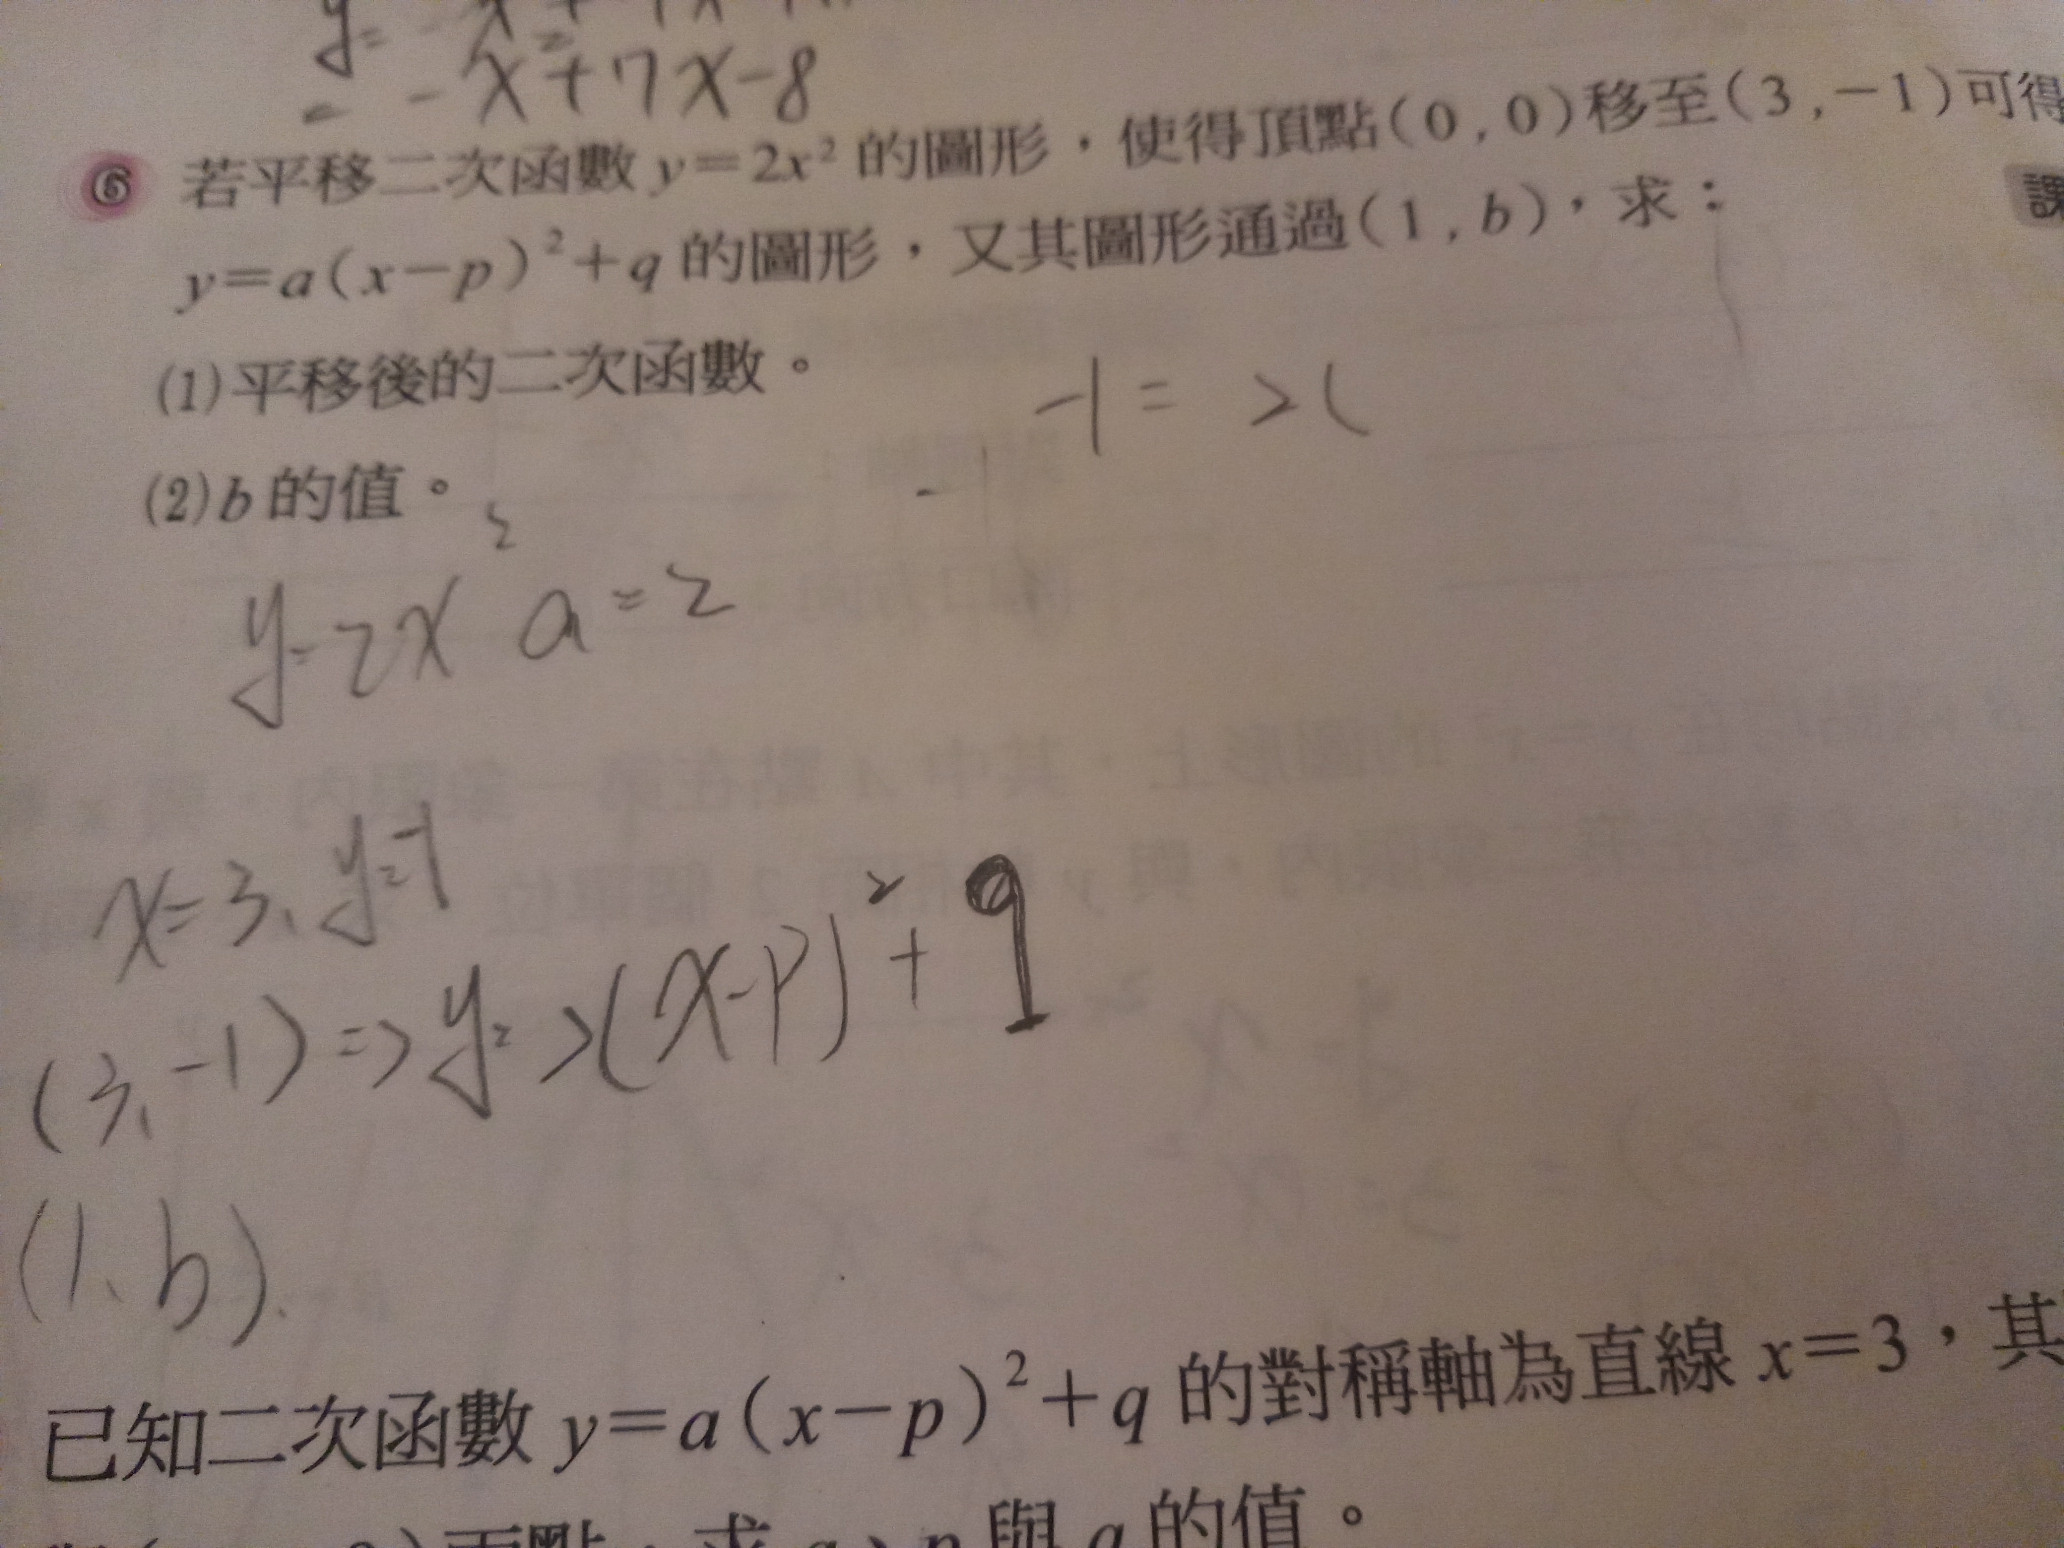 = -x²+7x-8
⑥ 若平移二次函數 y=2x² 的圖形，使得頂點(0,0)移至(3,-1)可得
y=a(x-p)²+q 的圖形，又其圖形通過(1,b)，求：
課
(1)平移後的二次函數。
-1= 2(
(2)b 的值。
-1
y=2x² a=2
x=3, y=-1
(3,-1)=>y=2(x-p)²+q
(1,b).
已知二次函數 y=a(x-p)²+q 的對稱軸為直線 x=3，其
兩點，求 a、p 與 q 的值。